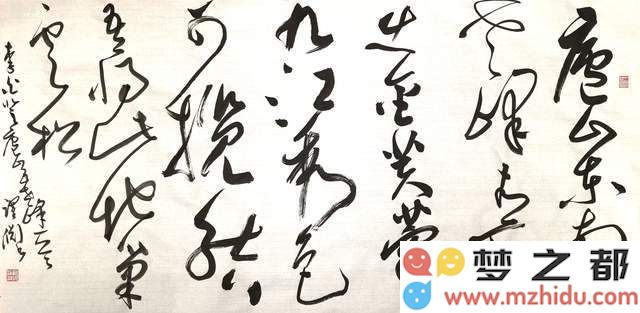 廬山东南
老峰青
出金芙蓉
九江秀色
可揽结
吾将此地巢
云松
李白登庐山五老峰
梦之都
www.mzhidu.com